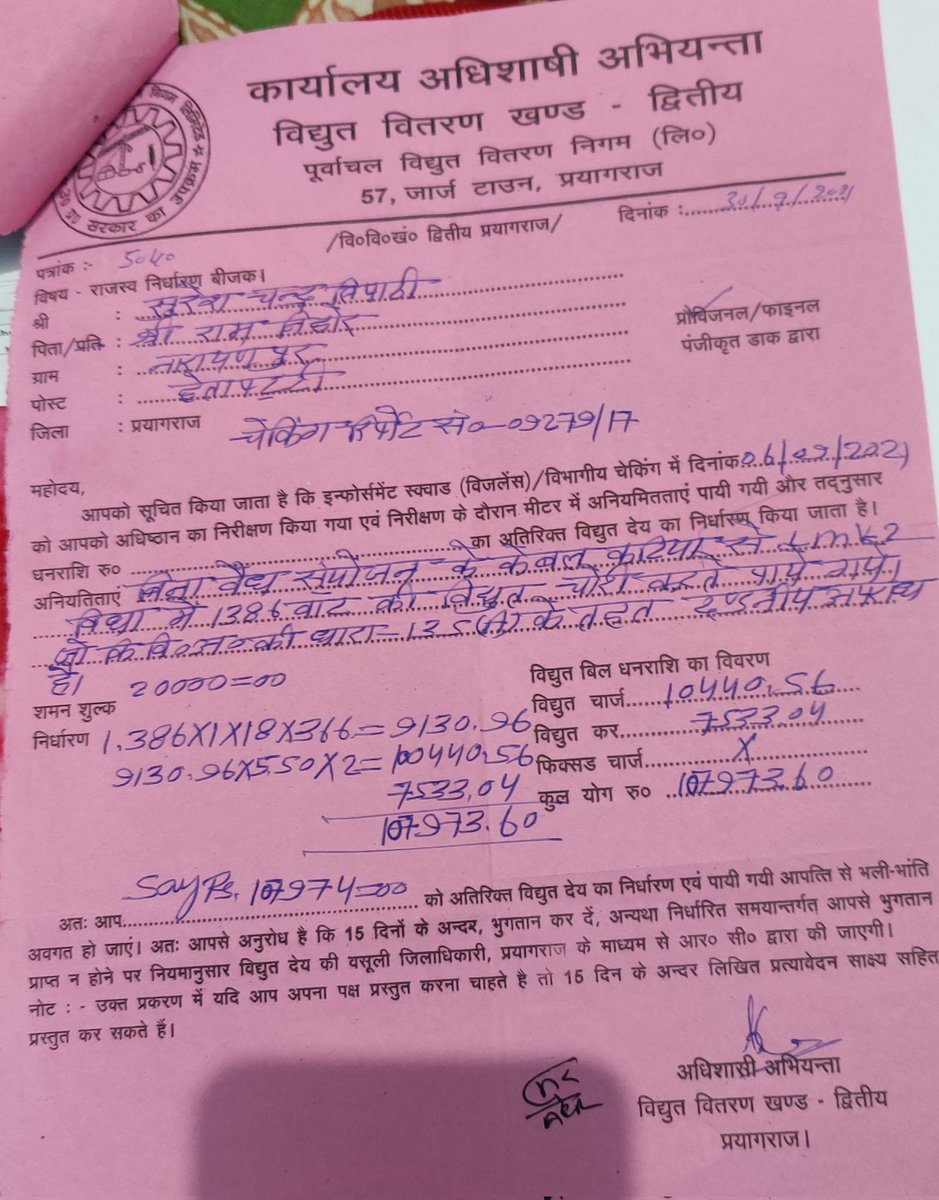 कार्यालय अधिशाषी अभियन्ता
विद्युत वितरण खण्ड - द्वितीय
पूर्वाचल विद्युत वितरण निगम (लि०)
57, जार्ज टाउन, प्रयागराज
उ० प्र० सरकार का उपक्रम
/वि०वि०खं० द्वितीय प्रयागराज/ दिनांक :- 30/9/2021
पत्रांक :- 5040
विषय - राजस्व निर्धारण बीजक।
श्री : सुरेश चन्द्र त्रिपाठी
पिता/प्रति : श्री राम किशोर
प्रोविजनल/फाइनल
ग्राम : नारायण पुर
पंजीकृत डाक द्वारा
पोस्ट : हेतापट्टी
जिला : प्रयागराज चेकिंग रिपोर्ट सं०-09279/17
महोदय,
आपको सूचित किया जाता है कि इन्फोर्समेंट स्क्वाड (विजलेंस)/विभागीय चेकिंग में दिनांक 06/09/2021
को आपको अधिष्ठान का निरीक्षण किया गया एवं निरीक्षण के दौरान मीटर में अनियमितताएं पायी गयी और तद्नुसार
धनराशि रु० का अतिरिक्त विद्युत देय का निर्धारण किया जाता है।
अनियतिताएं बिना वैध संयोजन के केबल कटिया से LMV2
विधा में 1386 वाट की विद्युत चोरी करते पाये गये।
जो कि वि०अ० की धारा-135(A) के तहत दण्डनीय अपराध
है। 20000=00
शमन शुल्क
विद्युत बिल धनराशि का विवरण
विद्युत चार्ज 10440.56
निर्धारण 1.386X1X18X366=9130.96
विद्युत कर 7533.04
9130.96X5.50X2=100440.56
फिक्सड चार्ज X
7533.04
कुल योग रु० 107973.60
107973.60
Say Rs. 107974=00
अतः आप को अतिरिक्त विद्युत देय का निर्धारण एवं पायी गयी आपत्ति से भली-भांति
अवगत हो जाएं। अतः आपसे अनुरोध है कि 15 दिनों के अन्दर, भुगतान कर दें, अन्यथा निर्धारित समयान्तर्गत् आपसे भुगतान
प्राप्त न होने पर नियमानुसार विद्युत देय की वसूली जिलाधिकारी, प्रयागराज के माध्यम से आर० सी० द्वारा की जाएगी।
नोट : - उक्त प्रकरण में यदि आप अपना पक्ष प्रस्तुत करना चाहते है तो 15 दिन के अन्दर लिखित प्रत्यावेदन साक्ष्य सहित
प्रस्तुत कर सकते हैं।
अधिशासी अभियन्ता
विद्युत वितरण खण्ड - द्वितीय
प्रयागराज।